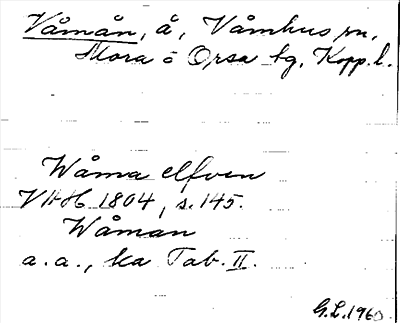 Våmån, å, Våmhus sn,
Mora o Orsa tg, Kopp. l.
Wåma elfven
VHH 1804, s. 145.
Wåman
a. a., ka Tab. II.
G.L. 1960